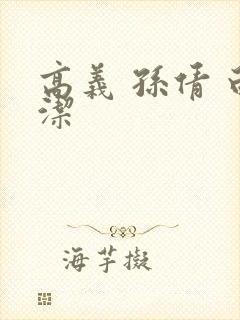 高義 孫倩
潔
海芋擬